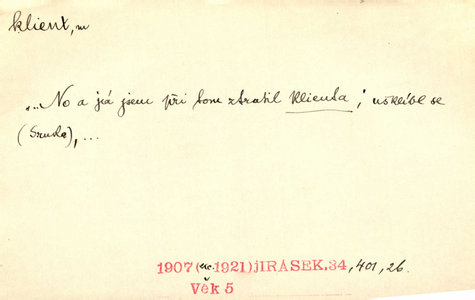 klient, m
"... No a já jsem při tom ztratil klienta", ušklíbl se
(Szuda), ...
1907 (1921) JIRÁSEK, 34, 401, 26.
Věk 5